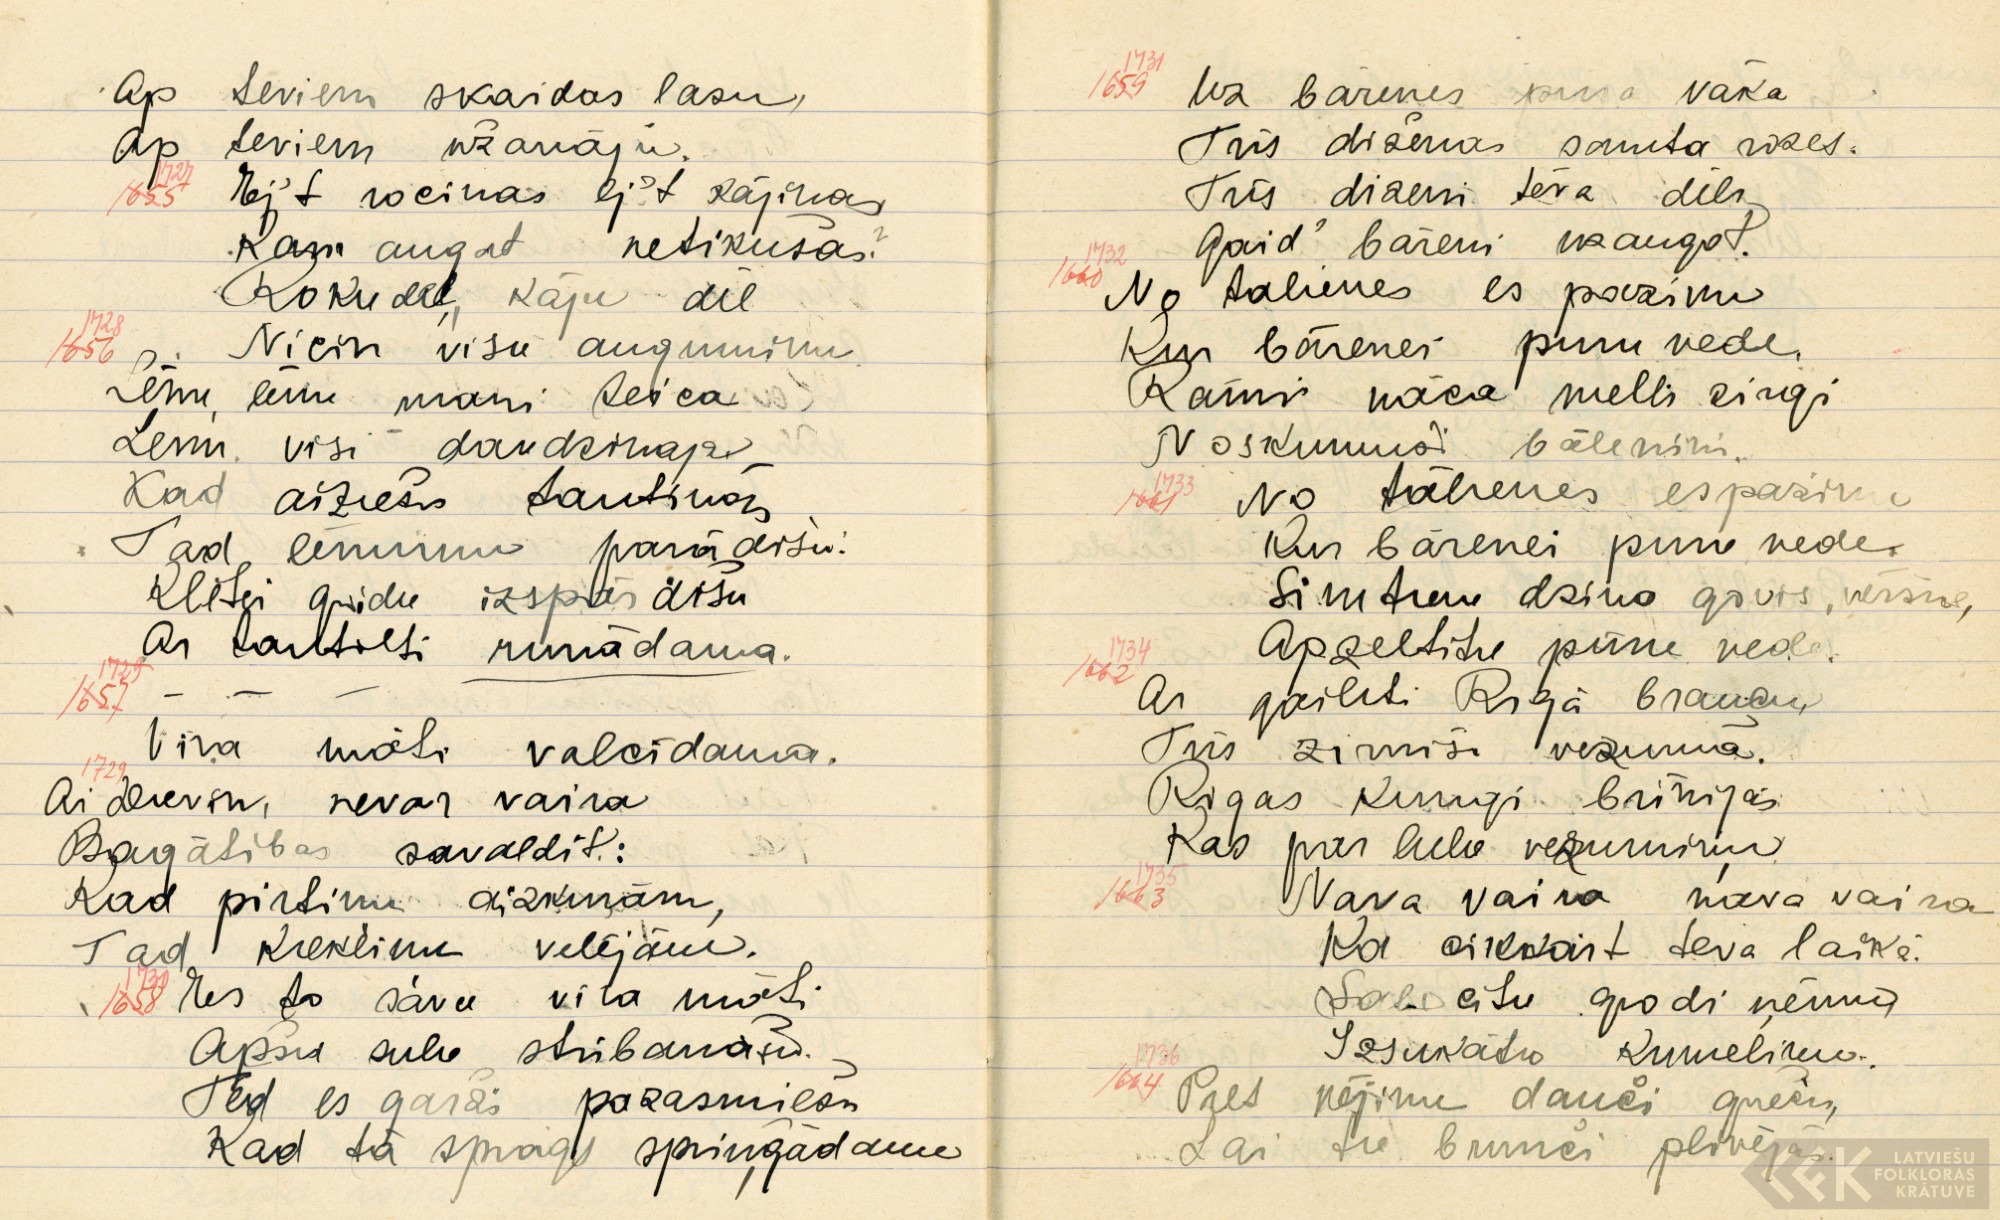 Ap teviem skaidas lasu,
Ap teviem užanāju.
1727
1655 Ej't rociņas ej't kājiņas
Kam augat netikušas?
Roku dēļ, kāju dēļ
1728
1656 Nīcin visu augumiņu
Lēnu, lēnu mani teica
Lēnu visi daudzinaja
Kad aiziešu tautiņās
Tad lēnumu parādīšu:
Klētei grīdu izspārdīšu
Ar tautieti runādama.
1729
1657 – – –
Vīra māti valcīdama.
1729
Ai dievin, nevar vaira
Bagātības savaldīt:
Kad pirtiņu aizkurām,
Tad krekliņu velējām.
1730
1658 Es to savu vīra māti
Apšu sulu stribanāšu.
Tad es gardi pazasmiešu
Kad tā sprāgs springādama
1731
1659 Uz bārenes pura vāka
Trīs diženas samta rozes.
Trīs dizeni tēva dēli
Gaid' bāreni uzaugot.
1732
1660 No talienes es pazinu
Kur bārenei puru vede.
Rāmi nāca melli zirgi
Noskumuši bāleniņi.
1733
1661 No tālienes es pazinu
Kur bārenei puru vede.
Simtiem dzina govis, vēršus,
Apzeltītu pūru veda.
1734
1662 Ar gaileti Rigā braucu,
Trīs zirniši vezumā.
Rigas kungi brīnijās
Kas par lielu vezumiņu
1735
1663 Nava vaira nava vaira
Kā citkārt teva laikā.
citu godi ņēma
Izsukātu kumeliņu.
1736
1664 Pret vējiņu danci griežu,
Lai tie brunči plivējās.
LATVIEŠU
FOLKLORAS
KRĀTUVE